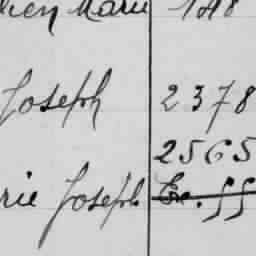 Marie 1218
Joseph 2378
2565
rie Joseph